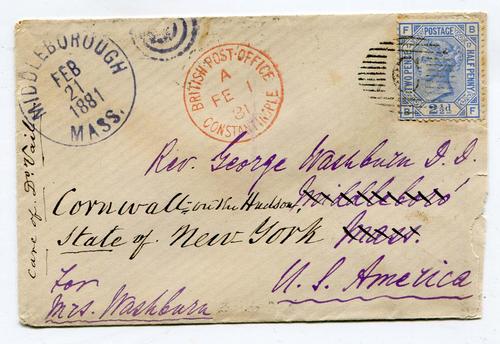 MIDDLEBOROUGH
FEB
21
1881
MASS.
BRITISH POST-OFFICE
A
FE 1
81
CONSTANTINOPLE
F B
POSTAGE
TWO PENCE
HALF PENNY
2½d
B F
Rev. George Washburn D. D.
Cornwall-on the Hudson, Middleboro'
State of New York Mass.
U. S. America
For
Mrs. Washburn
care of Dr Vail